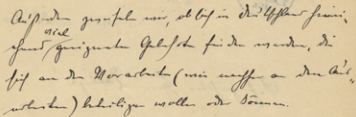 Außerdem zweifeln wir, ob sich in Deutschland hinrei-
chend viel geeignete Gelehrte finden werden, die
sich an den Vorarbeiten (wie nachher an den Aus-
arbeiten) beteiligen wollen oder können.